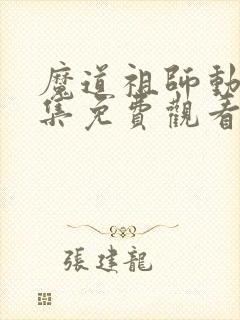 魔道祖師動
集免費觀看
張建龍